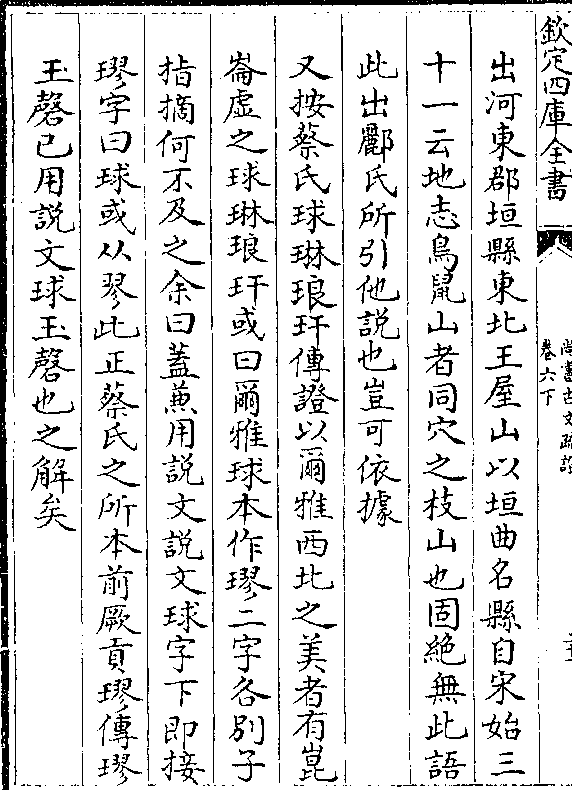 欽定四庫全書
尚書古文疏證
卷六下
出河東郡垣縣東北王屋山以垣曲名縣自宋始三
十一云地志鳥鼠山者同穴之枝山也固絶無此語
此出酈氏所引他說也豈可依據
又按蔡氏球琳琅玕傳證以爾雅西北之美者有崑
崙虛之球琳琅玕或曰爾雅球本作璆二字各別子
指摘何不及之余曰蓋兼用說文說文球字下即接
璆字曰球或从翏此正蔡氏之所本前厥貢璆傳璆
玉磬已用說文球玉磬也之解矣